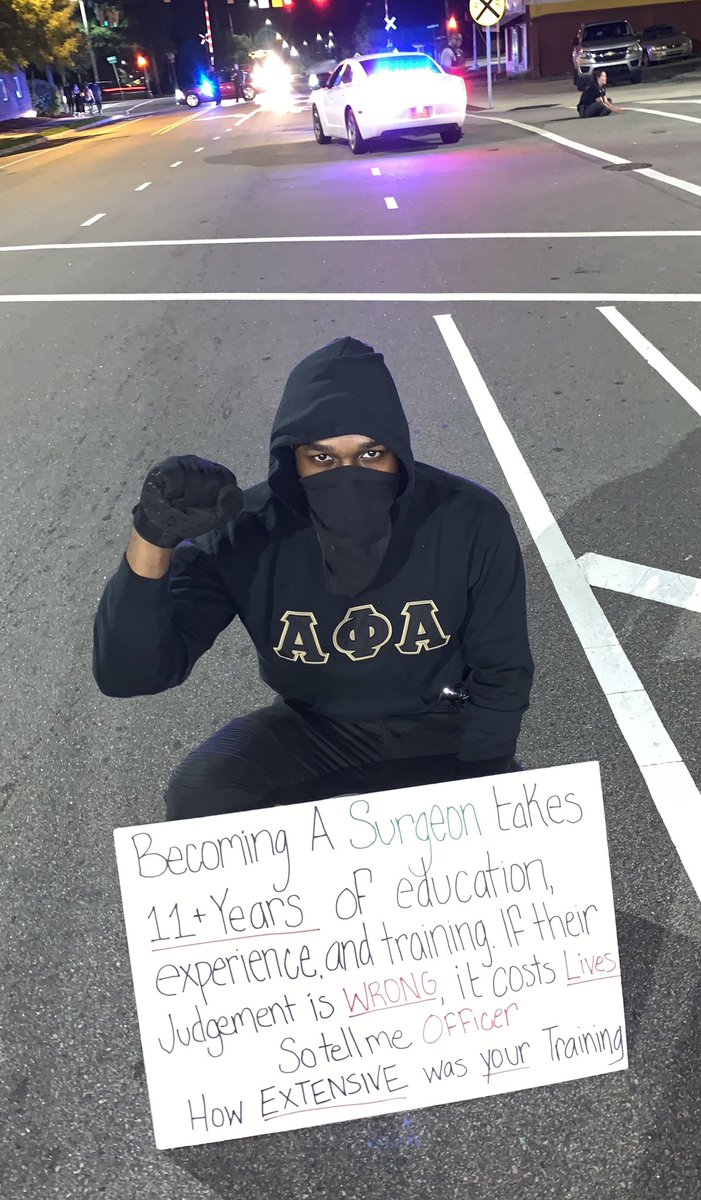 ΑΦΑ
Becoming A Surgeon takes
11+Years of education,
experience, and training. If their
Judgement is WRONG, it costs Lives
So tell me Officer
How EXTENSIVE was your Training